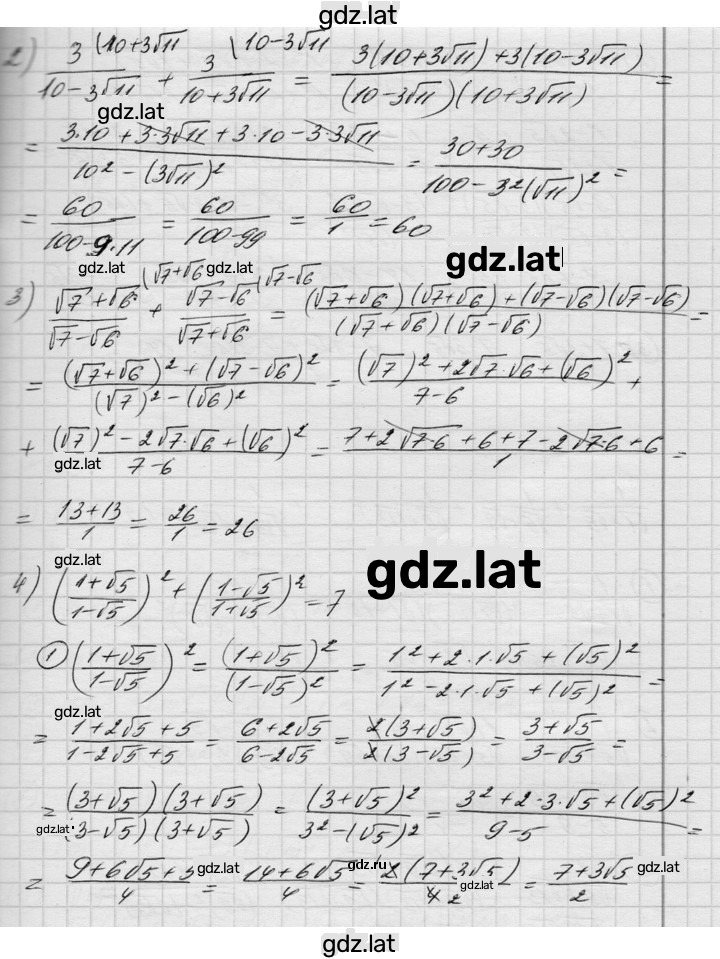 gdz.lat
2) 3 \(10+3√11 / (10-3√11) + 3 \10-3√11 / (10+3√11) = (3(10+3√11)+3(10-3√11)) / ((10-3√11)(10+3√11)) =
gdz.lat
= (3·10+3·3√11+3·10-3·3√11) / (10²-(3√11)²) = (30+30) / (100-3²(√11)²) =
= 60 / (100-9·11) = 60 / (100-99) = 60/1 = 60
gdz.lat gdz.lat gdz.lat
3) (√7+√6) / (√7-√6) \(√7+√6 + (√7-√6) / (√7+√6) \(√7-√6 = ((√7+√6)(√7+√6)+(√7-√6)(√7-√6)) / ((√7+√6)(√7-√6)) =
= ((√7+√6)²+(√7-√6)²) / ((√7)²-(√6)²) = ((√7)²+2√7·√6+(√6)²) / (7-6) +
+ ((√7)²-2√7·√6+(√6)²) / (7-6) = (7+2√7·6+6+7-2√7·6+6) / 1 =
gdz.lat
= (13+13)/1 = 26/1 = 26
gdz.lat gdz.lat
4) ((1+√5)/(1-√5))² + ((1-√5)/(1+√5))² = 7
① ((1+√5)/(1-√5))² = (1+√5)²/(1-√5)² = (1²+2·1·√5+(√5)²) / (1²-2·1·√5+(√5)²) =
gdz.lat
= (1+2√5+5) / (1-2√5+5) = (6+2√5) / (6-2√5) = 2(3+√5) / 2(3-√5) = (3+√5) / (3-√5) =
= (3+√5)(3+√5) / (3-√5)(3+√5) = (3+√5)² / (3²-(√5)²) = (3²+2·3·√5+(√5)²) / (9-5) =
gdz.lat
= (9+6√5+5) / 4 = (14+6√5) / 4 = 2(7+3√5) / 4 2 = (7+3√5) / 2
gdz.lat gdz.ru gdz.lat
gdz.lat